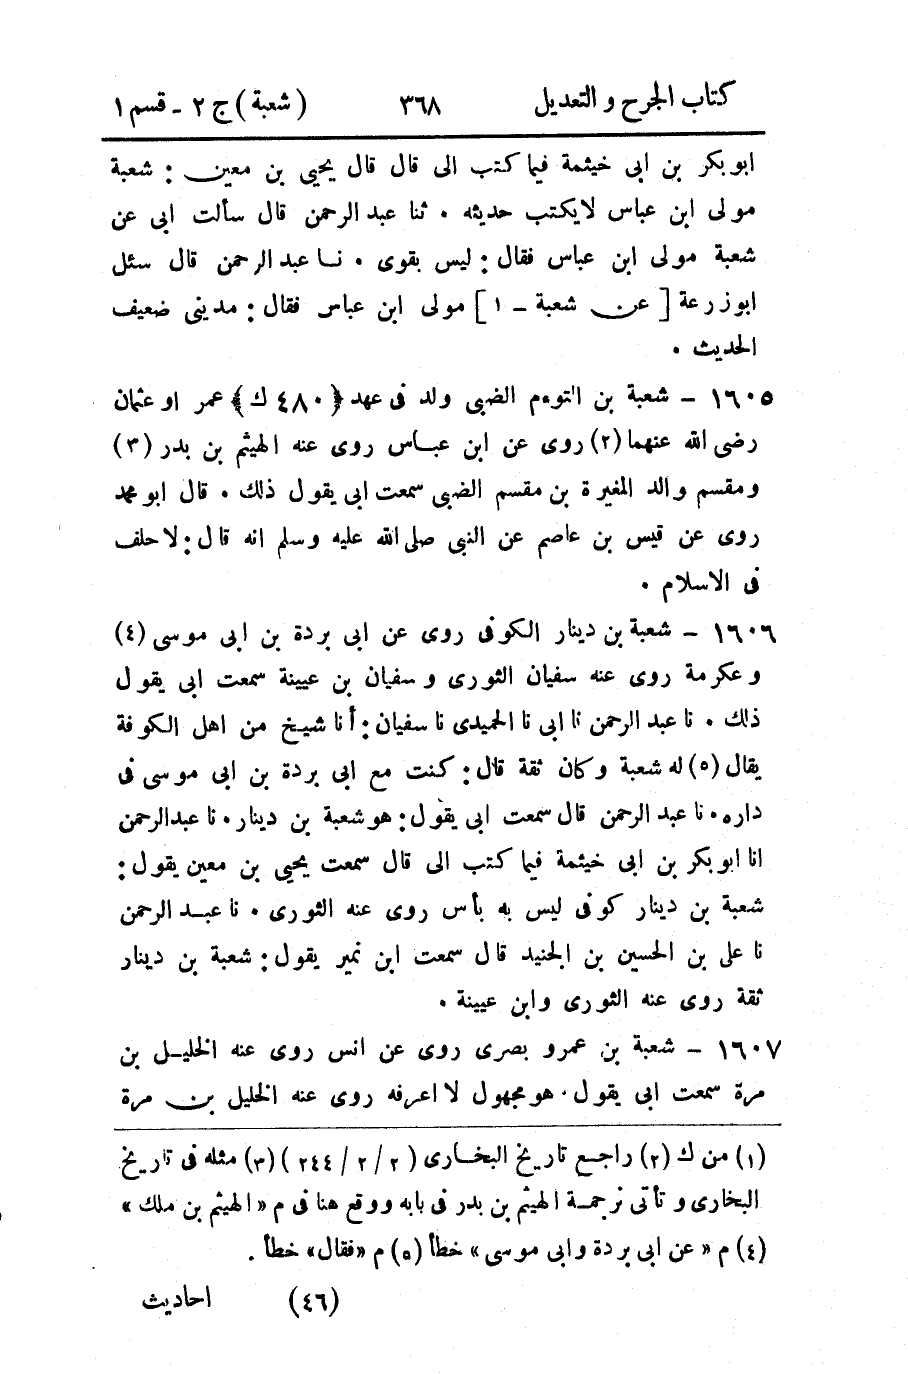 كتاب الجرح والتعديل ٣٦٨ (شعبة) ج ٢ - قسم ١
ابوبكر بن ابى خيثمة فيما كتب الى قال قال يحيى بن معين : شعبة
مولى ابن عباس لايكتب حديثه . ثنا عبد الرحمن قال سألت ابى عن
شعبة مولى ابن عباس فقال : ليس بقوى . نا عبد الرحمن قال سئل
ابوزرعة [ عن شعبة - ١ ] مولى ابن عباس فقال : مدينى ضعيف
الحديث .
١٦٠٥ - شعبة بن التوءم الضبى ولد فى عهد ﴿٤٨٠ ك﴾ عمر او عثمان
رضى الله عنهما (٢) روى عن ابن عباس روى عنه الهيثم بن بدر (٣)
ومقسم والد المغيرة بن مقسم الضبى سمعت ابى يقول ذلك . قال ابو محمد
روى عن قيس بن عاصم عن النبى صلى الله عليه وسلم انه قال : لا حلف
فى الاسلام .
١٦٠٦ - شعبة بن دينار الكوفى روى عن ابى بردة بن ابى موسى (٤)
وعكرمة روى عنه سفيان الثورى وسفيان بن عيينة سمعت ابى يقول
ذلك . نا عبد الرحمن نا ابى نا الحميدى نا سفيان : أنا شيخ من اهل الكوفة
يقال (٥) له شعبة وكان ثقة قال : كنت مع ابى بردة بن ابى موسى فى
داره . نا عبد الرحمن قال سمعت ابى يقول : هو شعبة بن دينار . نا عبدالرحمن
انا ابوبكر بن ابى خيثمة فيما كتب الى قال سمعت يحيى بن معين يقول :
شعبة بن دينار كوفى ليس به بأس روى عنه الثورى . نا عبد الرحمن
نا على بن الحسين بن الجنيد قال سمعت ابن نمير يقول : شعبة بن دينار
ثقة روى عنه الثورى وابن عيينة .
١٦٠٧ - شعبة بن عمرو بصرى روى عن انس روى عنه الخليل بن
مرة سمعت ابى يقول . هو مجهول لا اعرفه روى عنه الخليل بن مرة
(١) من ك (٢) راجع تاريخ البخارى (٢ / ٢ / ٢٤٤) (٣) مثله فى تاريخ
البخارى وتأتى ترجمة الهيثم بن بدر فى بابه ووقع هنا فى م « الهيثم بن ملك »
(٤) م « عن ابى بردة وابى موسى » خطأ (٥) م « فقال » خطأ .
(٤٦) احاديث